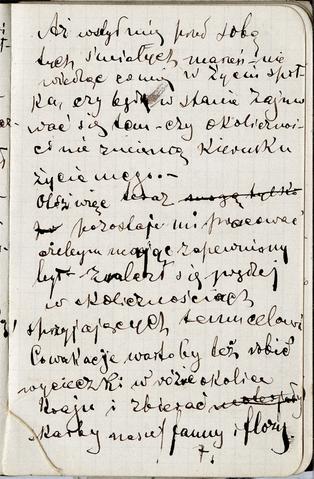 Aż wstydzę się przed sobą
tych śmiałych marzeń - nie
wiedząc co mnie w życiu spot-
ka, czy będę w stanie zajmo
wać się tem - czy okoliczno-
ci nie zmienią kierunku
życia mego. -
Otóż więc teraz
pozostaje mi pracować
ażebym mając zapewniony
byt znalazł się później
w okolicznościach
sprzyjających temu celowi
Co wakacje warto by też robić
wycieczki w różne okolice
kraju i zbierać
skarby naszej fauny i flory.